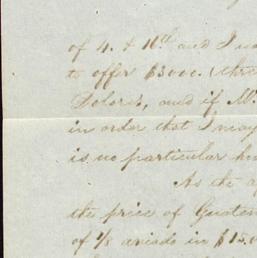 of 4. & 16th and I
to offer $3000. (thre
Dolores, and if M.
in order that I may
is no particular
As the a
the price of Guatem
of 7/8 aviado in $15.0